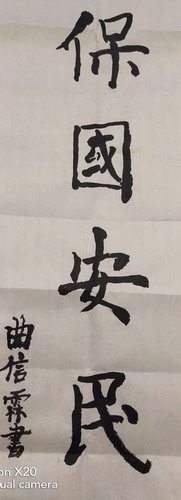 保國安民
曲信霖書
on X20
ual camera